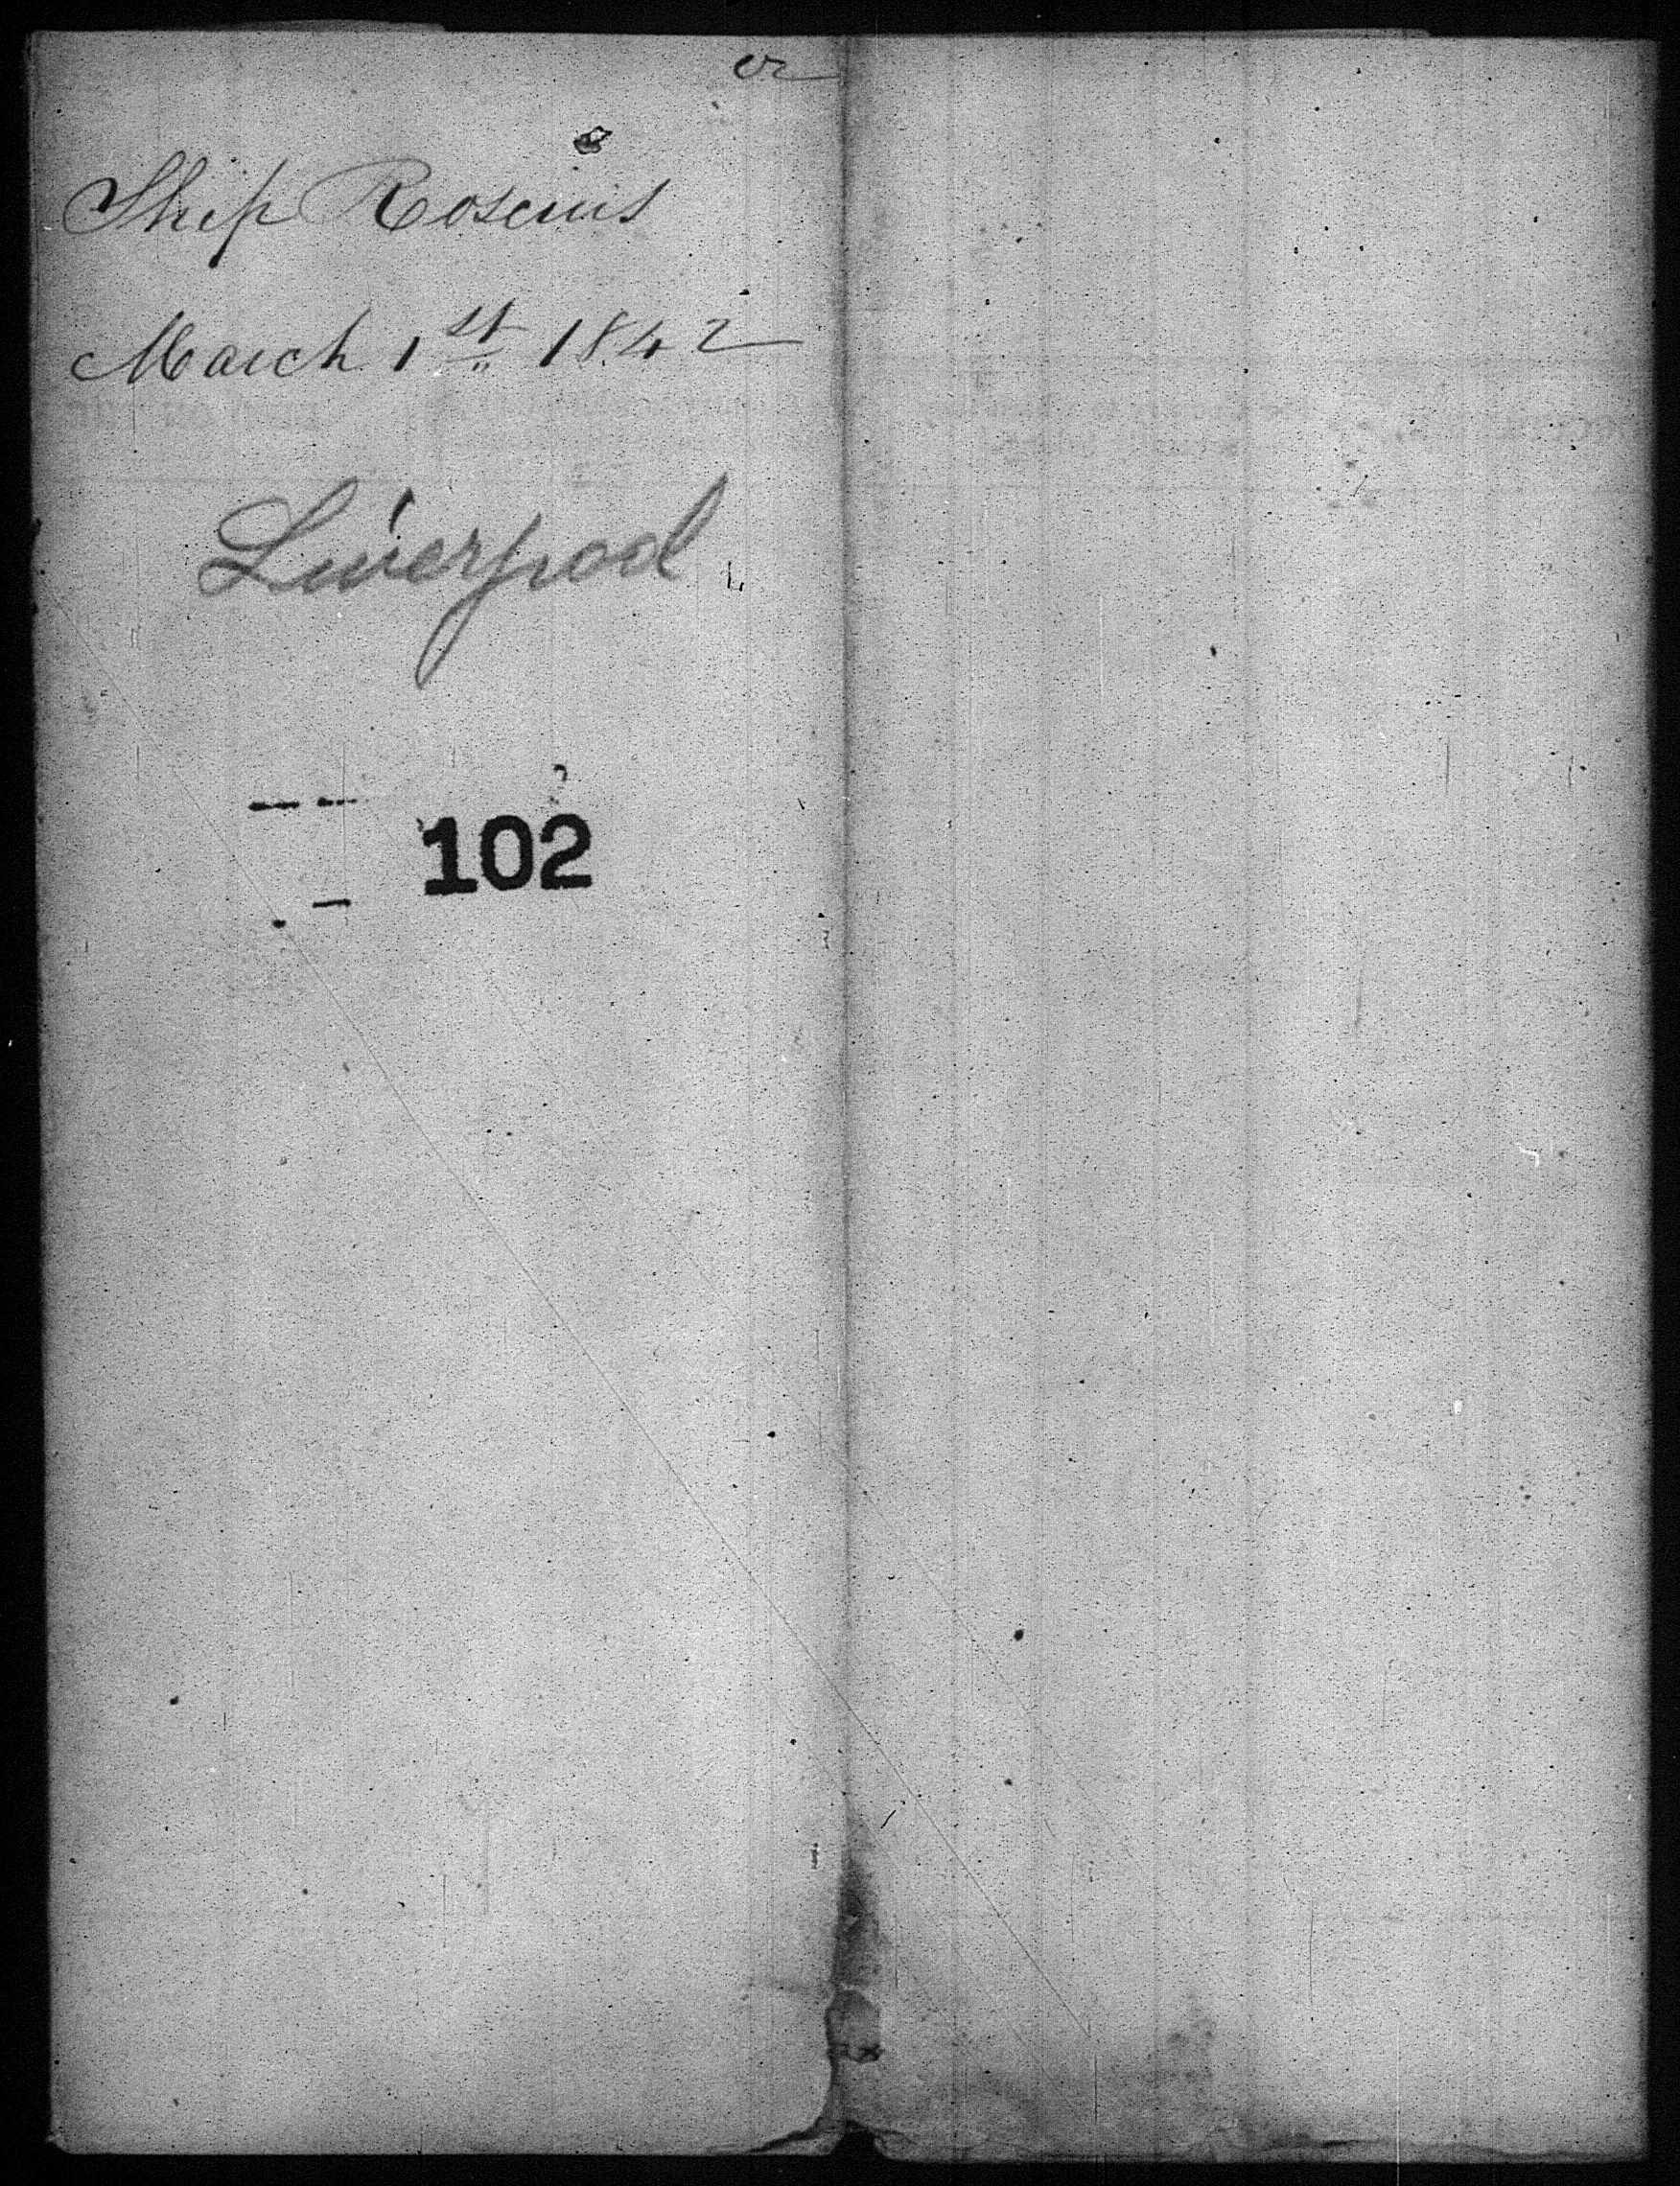 Ship Roscius
March 1st 1842
Liverpool
102